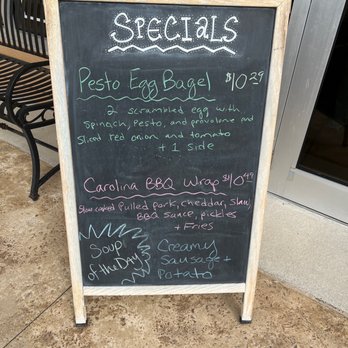 Specials
Pesto Egg Bagel $10.29
2 scrambled egg with
Spinach, Pesto, and provolone and
sliced red onion and tomato
+ 1 side
Carolina BBQ Wrap $10.49
Slow cooked Pulled pork, cheddar, slaw,
BBQ sauce, pickles
+ Fries
Soup
of the Day
Creamy
Sausage +
Potato